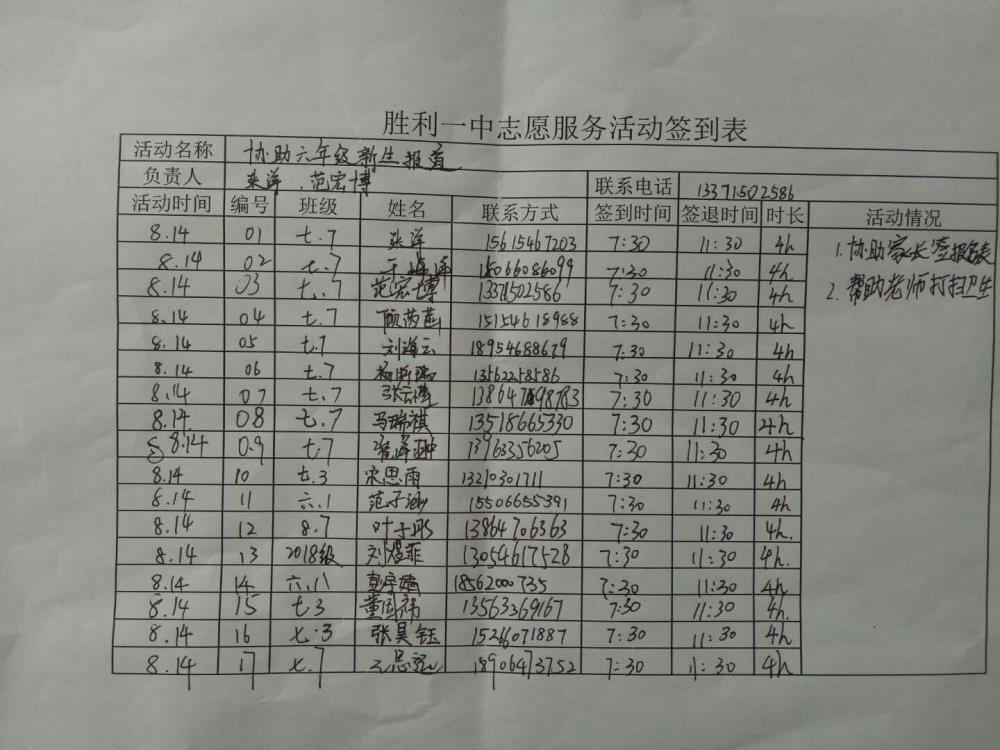 胜利一中志愿服务活动签到表
活动名称 协助六年级新生报道
负责人 范宏博 联系电话 13371502586
活动时间 编号 班级 姓名 联系方式 签到时间 签退时间 时长 活动情况
8.14 01 七.7 15615467203 7:30 11:30 4h 1.协助家长签报名表
8.14 02 七.7 18066086099 7:30 11:30 4h 2.帮助老师打扫卫生
8.14 03 七.7 范宏博 13371502586 7:30 11:30 4h
8.14 04 七.7 15154618988 7:30 11:30 4h
8.14 05 七.7 18954688679 7:30 11:30 4h
8.14 06 七.7 13562258586 7:30 11:30 4h
8.14 07 七.7 7:30 11:30 4h
8.14 08 七.7 马瑞祺 13518665330 7:30 11:30 4h
8.14 09 七.7 13963356205 7:30 11:30 4h
8.14 10 七.3 宋思雨 13210301711 7:30 11:30 4h
8.14 11 六.1 范子涵 15506655391 7:30 11:30 4h
8.14 12 8.7 叶子彤 13864706363 7:30 11:30 4h.
8.14 13 2018级 13054617528 7:30 11:30 4h.
8.14 14 六.八 18562000735 7:30 11:30 4h
8.14 15 七.3 13563369167 7:30 11:30 4h.
8.14 16 七.3 张昊钰 15266071887 7:30 11:30 4h
8.14 17 七.7 18906473752 7:30 11:30 4h